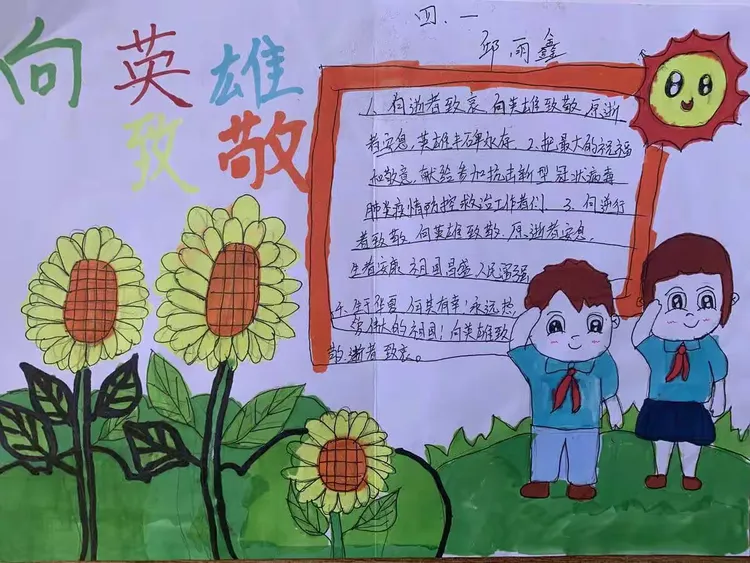 四、一
邱雨鑫
向英雄
致敬
1、向逝者致哀 向英雄致敬 原逝
者安息,英雄丰碑永存 2、把最大的祝福
和敬意,献给参加抗击新型冠状病毒
肺炎疫情防控救治工作者们 3、向逆行
者致敬 向英雄致敬 原逝者安息,
生者安康 祖国昌盛 人民富强
生于华夏 何其有幸!永远热
爱伟大的祖国!向英雄致
敬 逝者致哀。